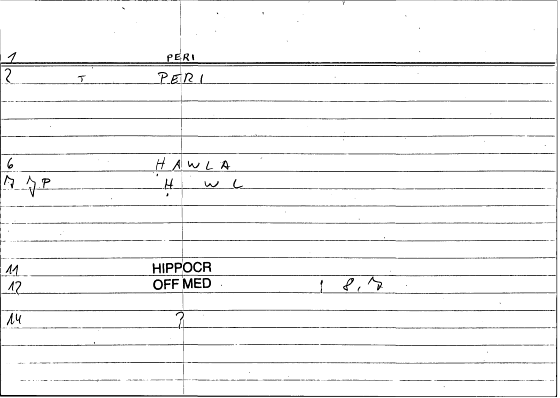 1 PERI
2 T PERI
6 ḤAWLA
7 P Ḥ W L
11 HIPPOCR
12 OFF MED 1 8,7
14 ?